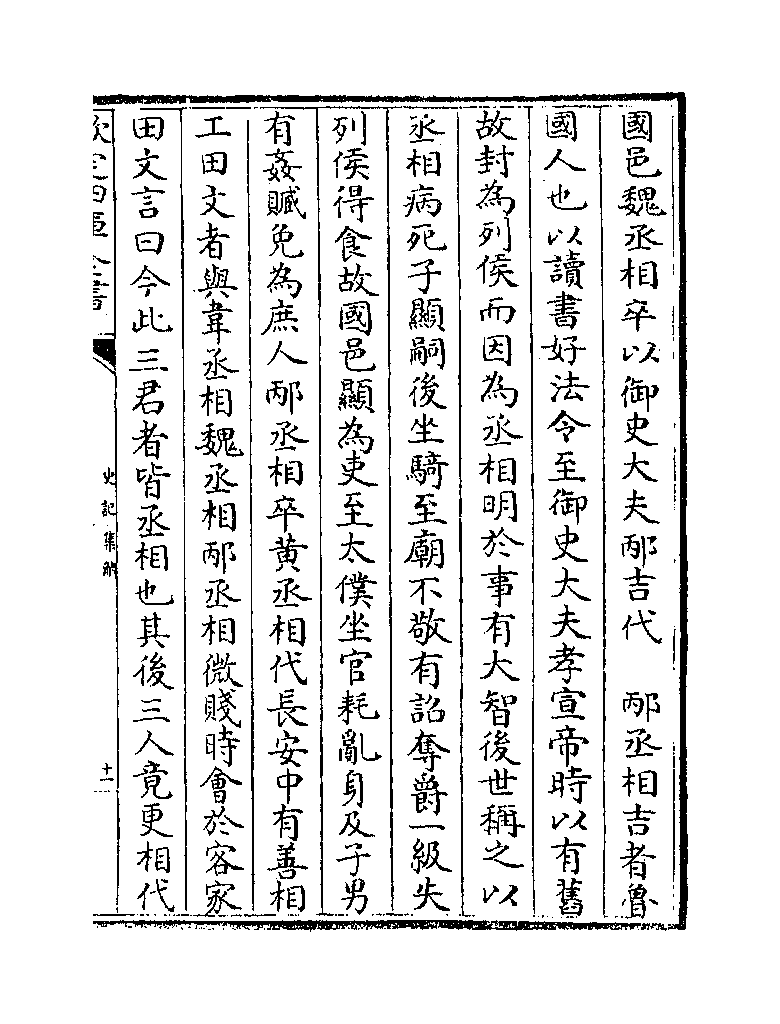 國邑魏丞相卒以御史大夫邴吉代　邴丞相吉者魯
國人也以讀書好法令至御史大夫孝宣帝時以有舊
故封為列侯而因為丞相明於事有大智後世稱之以
丞相病死子顯嗣後坐騎至廟不敬有詔奪爵一級失
列侯得食故國邑顯為吏至太僕坐官耗亂身及子男
有姦贓免為庶人邴丞相卒黄丞相代長安中有善相
工田文者與韋丞相魏丞相邴丞相微賤時會於客家
田文言曰今此三君者皆丞相也其後三人竟更相代
欽定四庫全書
史記集解
十一